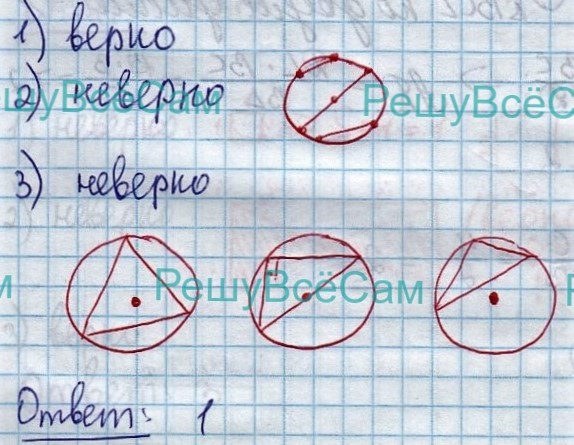 1) верно
2) неверно
РешуВсёСам
РешуВсёС
3) неверно
РешуВсёСам
Ответ: 1